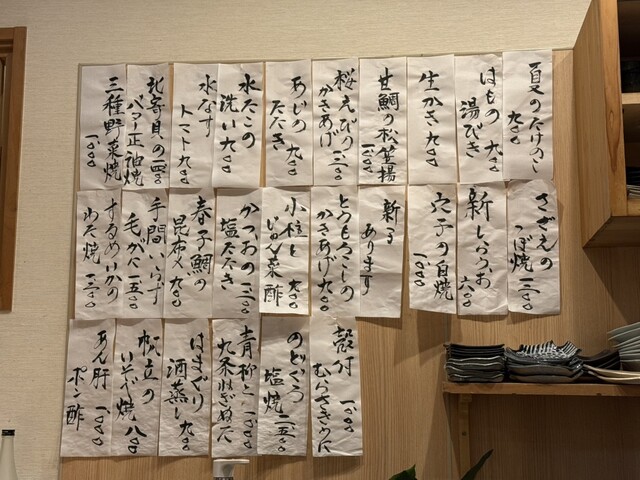 夏のたけのこ
九〇〇
はもの
湯びき
九〇〇
生かき 九〇〇
甘鯛の松笠揚
一八〇〇
桜えびの
かきあげ
一二〇〇
あじの
たたき
九〇〇
水たこの
洗い 九〇〇
水なす
トマト 九〇〇
貝の
バター正油焼
三種野菜焼
一〇〇〇
さざえの
つぼ焼 一二〇〇
新しらうお
六〇〇
穴子の白焼
一〇〇〇
あります
とうもろこしの
かきあげ 九〇〇
小柱と
じゅん菜酢
九〇〇
かつおの
塩たたき
一二〇〇
春子鯛の
昆布〆 九〇〇
手間いらず
毛がに 一五〇〇
するめいかの
わた焼 一二〇〇
殻付
むらさきうに
一八〇〇
のどぐろ
塩焼 二五〇〇
青柳と
九条ねぎぬた
はまぐり
酒蒸し 九〇〇
帆立の
いそべ焼 八〇〇
あん肝
ポン酢
一〇〇〇